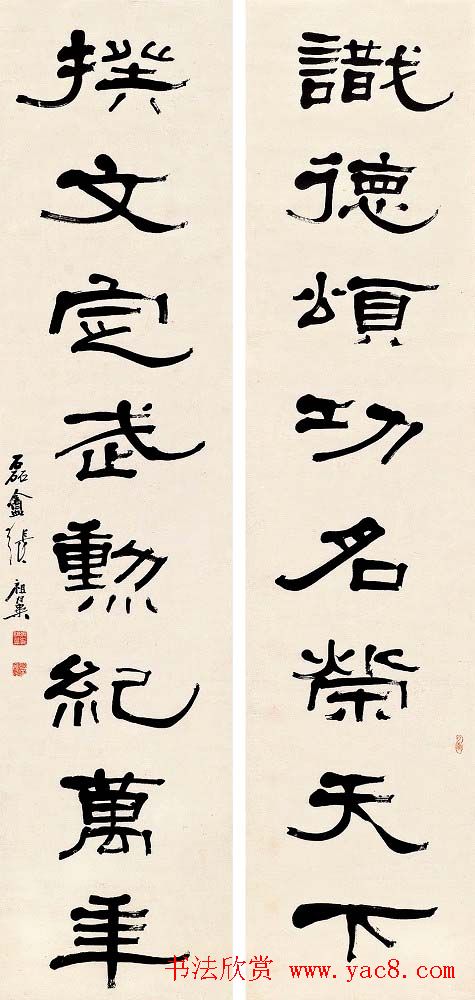 識德頌功名榮天下
揆文定武勲紀萬年
磊盦張祖翼
书法欣赏 www.yac8.com